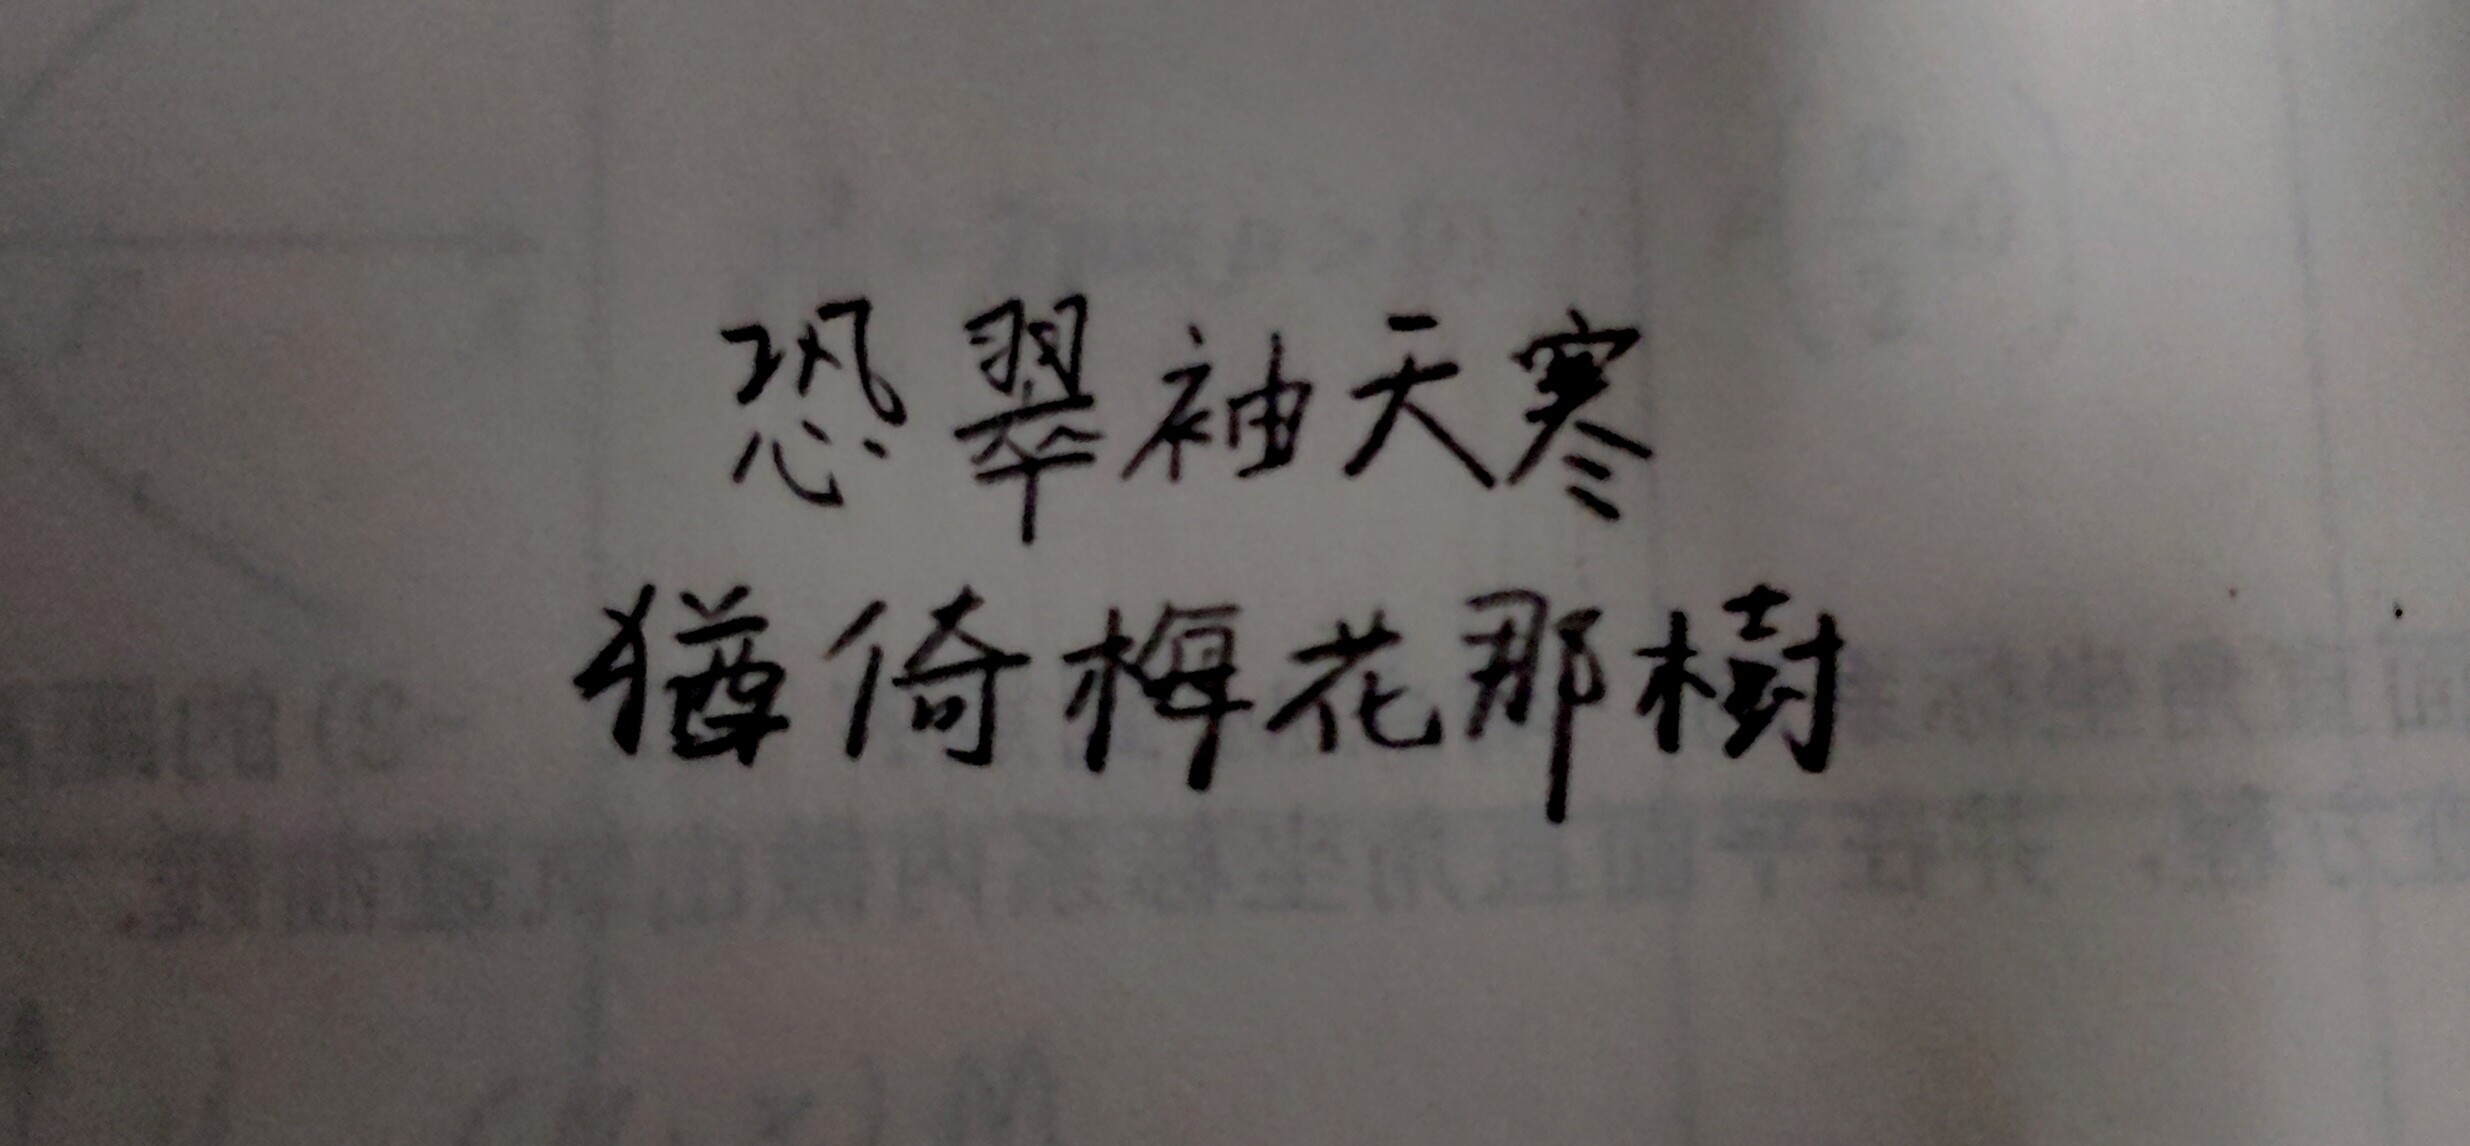 恐翠袖天寒
猶倚梅花那樹